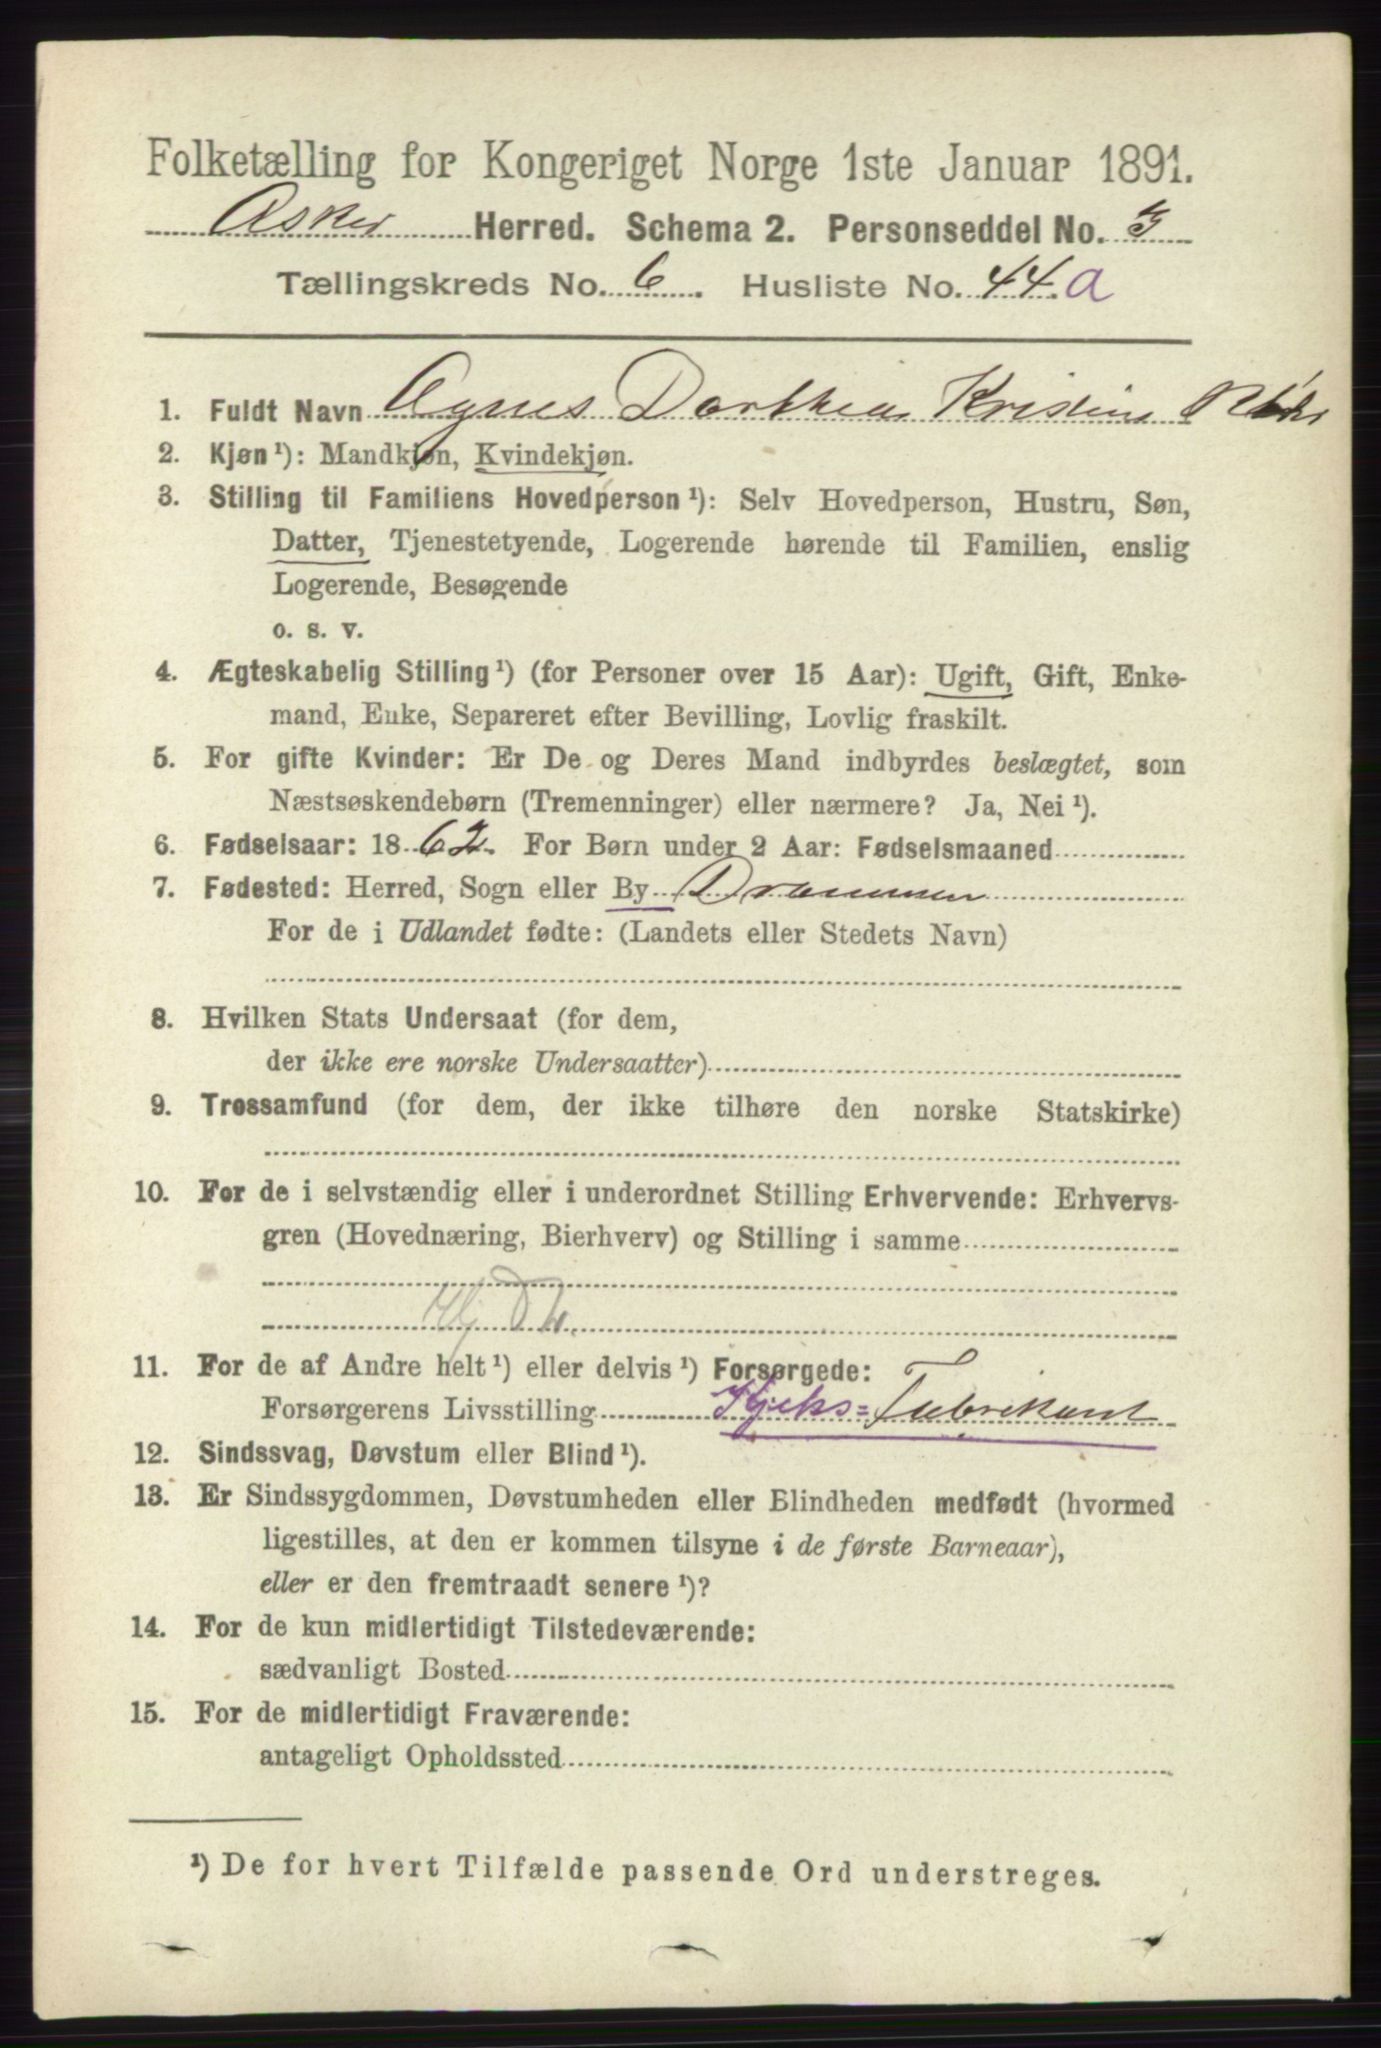 Folketælling for Kongeriget Norge 1ste Januar 1891.
Asker Herred. Schema 2. Personseddel No. 5
Tællingskreds No. 6. Husliste No. 44 a
1. Fuldt Navn Agnes Dorthea Kristine
2. Kjøn ¹): Mandkjøn, Kvindekjøn.
3. Stilling til Familiens Hovedperson ¹): Selv Hovedperson, Hustru, Søn,
Datter, Tjenestetyende, Logerende hørende til Familien, enslig
Logerende, Besøgende
o. s. v.
4. Ægteskabelig Stilling ¹) (for Personer over 15 Aar): Ugift, Gift, Enke-
mand, Enke, Separeret efter Bevilling, Lovlig fraskilt.
5. For gifte Kvinder: Er De og Deres Mand indbyrdes beslægtet, som
Næstsøskendebørn (Tremenninger) eller nærmere? Ja, Nei ¹).
6. Fødselsaar: 1862. For Børn under 2 Aar: Fødselsmaaned
7. Fødested: Herred, Sogn eller By Drammen
For de i Udlandet fødte: (Landets eller Stedets Navn)
8. Hvilken Stats Undersaat (for dem,
der ikke ere norske Undersaatter)
9. Trossamfund (for dem, der ikke tilhøre den norske Statskirke)
10. For de i selvstændig eller i underordnet Stilling Erhvervende: Erhvervs-
gren (Hovednæring, Bierhverv) og Stilling i samme
11. For de af Andre helt ¹) eller delvis ¹) Forsørgede:
Forsørgerens Livsstilling Kjeks=Fabrikant
12. Sindssvag, Døvstum eller Blind ¹).
13. Er Sindssygdommen, Døvstumheden eller Blindheden medfødt (hvormed
ligestilles, at den er kommen tilsyne i de første Barneaar),
eller er den fremtraadt senere ¹)?
14. For de kun midlertidigt Tilstedeværende:
sædvanligt Bosted
15. For de midlertidigt Fraværende:
antageligt Opholdssted
¹) De for hvert Tilfælde passende Ord understreges.